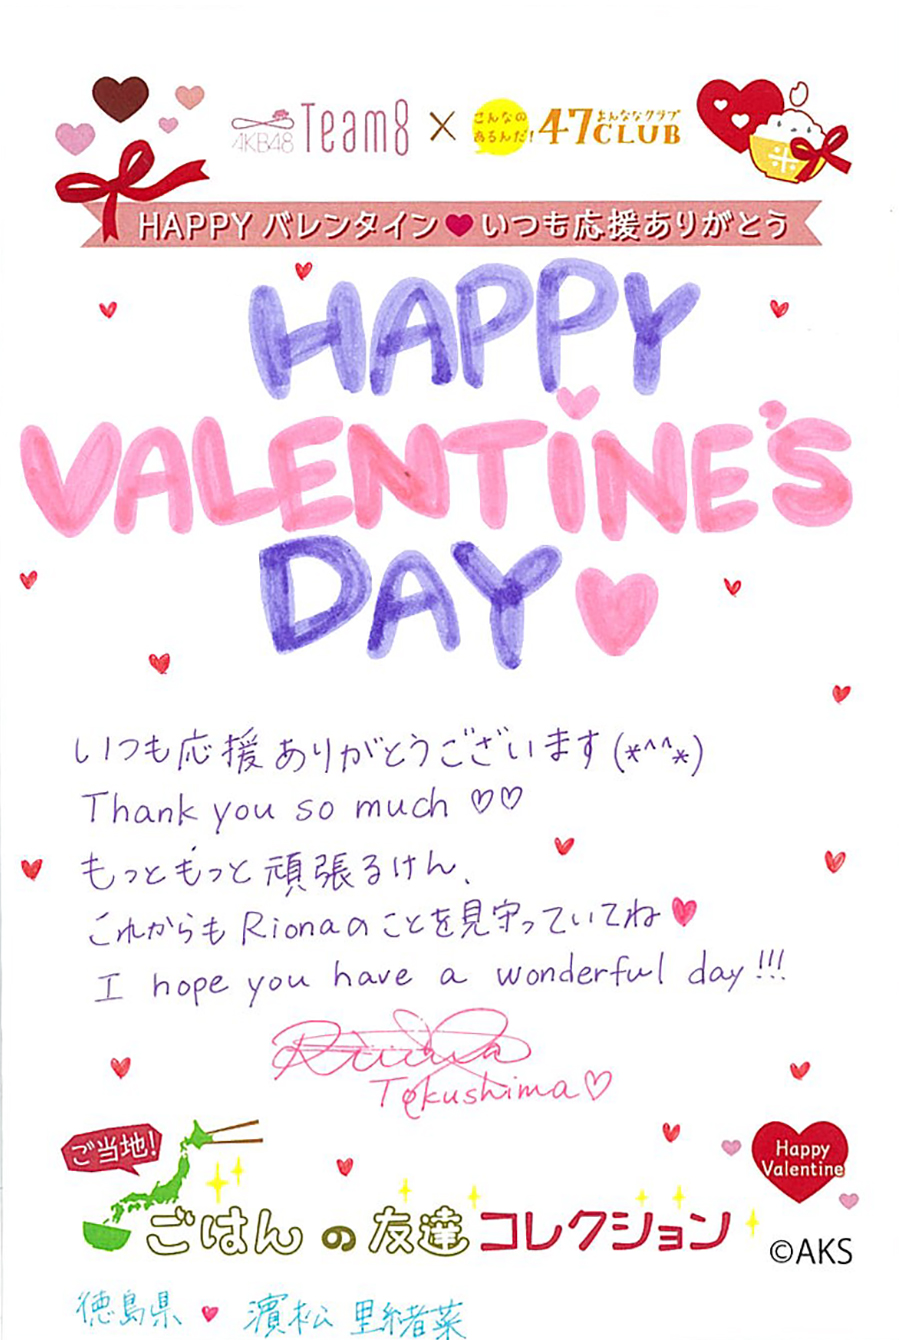 AKB48 Team8 × こんなの あるんだ! 47CLUB よんななクラブ
HAPPY バレンタイン♥いつも応援ありがとう
HAPPY
VALENTINE'S
DAY♥
いつも応援ありがとうございます(*^^*)
Thank you so much ♡♡
もっともっと頑張るけん、
これからもRionaのことを見守っていてね♥
I hope you have a wonderful day!!!
Riona
Tokushima♡
ご当地!
Happy
Valentine
ごはんの友達コレクション
©AKS
徳島県 ♥ 濵松 里緒菜